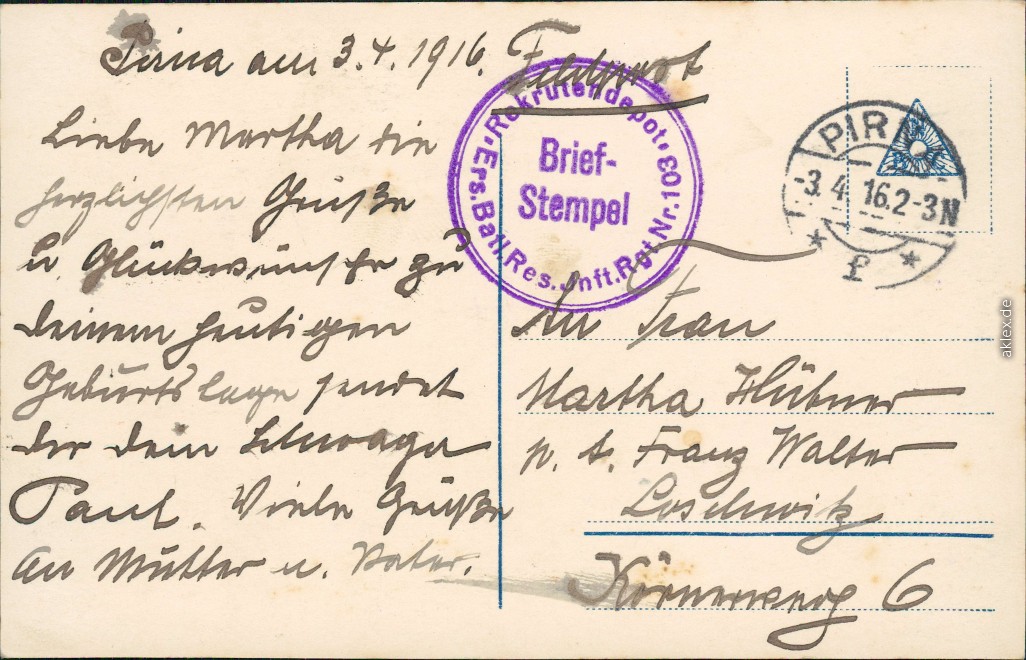 Pirna am 3.4.1916. Feldpost
Liebe Martha die
herzlichsten Grüße
u. Glückwünsche zu
deinem heutigen
Geburtstage sendet
dir dein Schwager
Paul. Viele Grüße
an Mutter u. Vater.
Rekrutendepot
Ers. Batl. Res. Inft. Rgt. Nr. 103
Brief-
Stempel
PIRNA
-3.4.16.2-3N
* f *
An Frau
Martha Hübner
p. A. Franz Walter
Loschwitz
Körnerweg 6
aklex.de